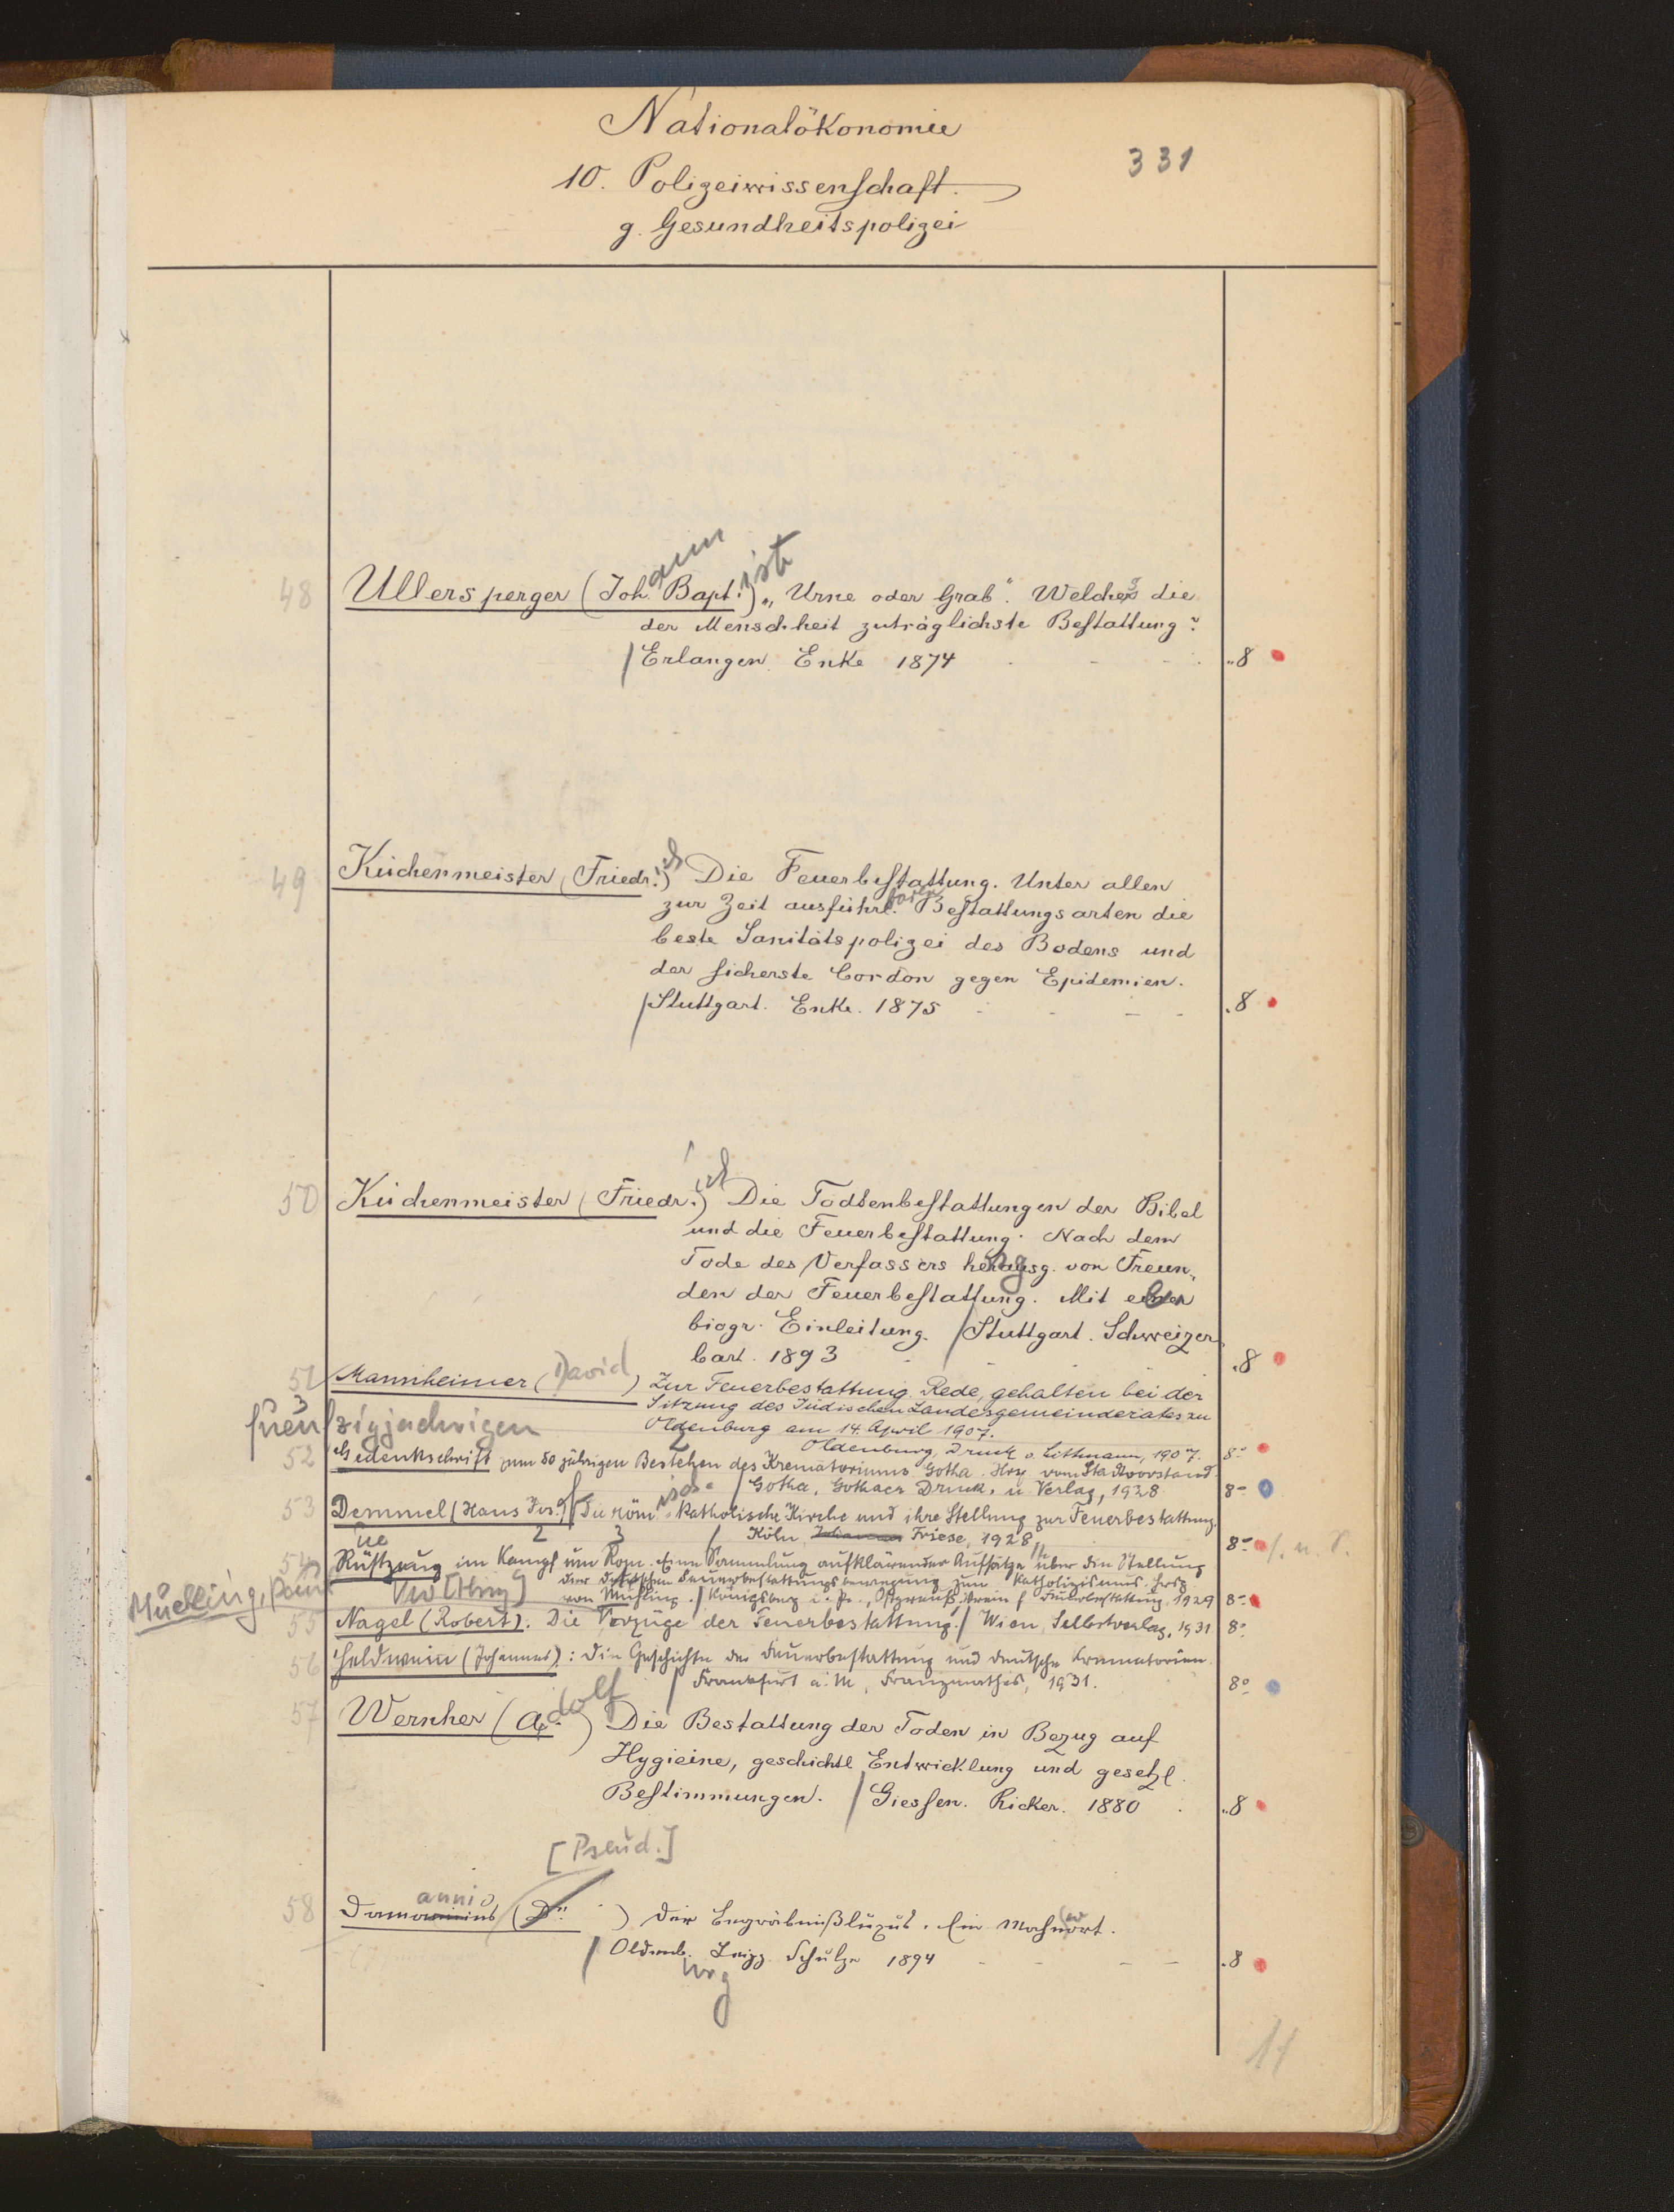 Nationalökonomie
331
10. Polizeiwissenschaft.
g. Gesundheitspolizei
ann ist
48 Ullersperger (Joh. Bapt.) „Urne oder Grab“. Welches die
der Menschheit zuträglichste Bestattung?
Erlangen. Enke 1874 „8
ich
49 Küchenmeister (Friedr.) Die Feuerbestattung. Unter allen
baren
zur Zeit ausführl. Bestattungsarten die
beste Sanitätspolizei des Bodens und
der sicherste Cordon gegen Epidemien.
Stuttgart. Enke. 1875 „8
ich
50 Küchenmeister (Friedr.) Die Todtenbestattungen der Bibel
und die Feuerbestattung. Nach dem
Tode des Verfassers herausg. von Freun-
den der Feuerbestattung. Mit einer
biogr. Einleitung. Stuttgart. Schweizer
bart. 1893 „8
51 Mannheimer (David) Zur Feuerbestattung. Rede, gehalten bei der
Sitzung des Jüdischen Landesgemeinderates zu
Oldenburg am 14. April 1907.
Oldenburg, Druck v. Littmann, 1907. 8°
3 2
fuenfzigjaehrigen
52 Gedenkschrift zum 50 jährigen Bestehen des Krematoriums Gotha. Hrsg. vom Stadtvorstand.
Gotha, Gothaer Druck. u. Verlag, 1928 8°
isch-
53 Demmel (Hans Jos.) Die röm.-katholische Kirche und ihre Stellung zur Feuerbestattung.
Köln, Friese, 1928 8°
ue 2 3
54 Rüstzeug im Kampf um Rom. Eine Sammlung aufklärender Aufsätze über die Stellung
der deutschen Feuerbestattungsbewegung zum Katholizismus. Hrsg.
von Mühling. Königsberg i. Pr., Ostpreuß. Verein f. Feuerbestattung. 1929 8°
Muehling,
55 Nagel (Robert). Die Vorzüge der Feuerbestattung. Wien, Selbstverlag, 1931 8°
56 Heldwein (Johannes): Die Geschichte der Feuerbestattung und deutsche Krematorien.
Frankfurt a. M, Franzmathes, 1931. 8°
dolf
57 Wernher (A.) Die Bestattung der Toden in Bezug auf
Hygieine, geschichtl Entwicklung und gesetzl.
Bestimmungen. Giessen. Ricker. 1880 „8
[Pseud.]
annis
58 (Dr. ) Der Begräbnißluxus. Ein Mahnwort.
Oldenb. Leipz. Schulze 1894 „8
urg
14